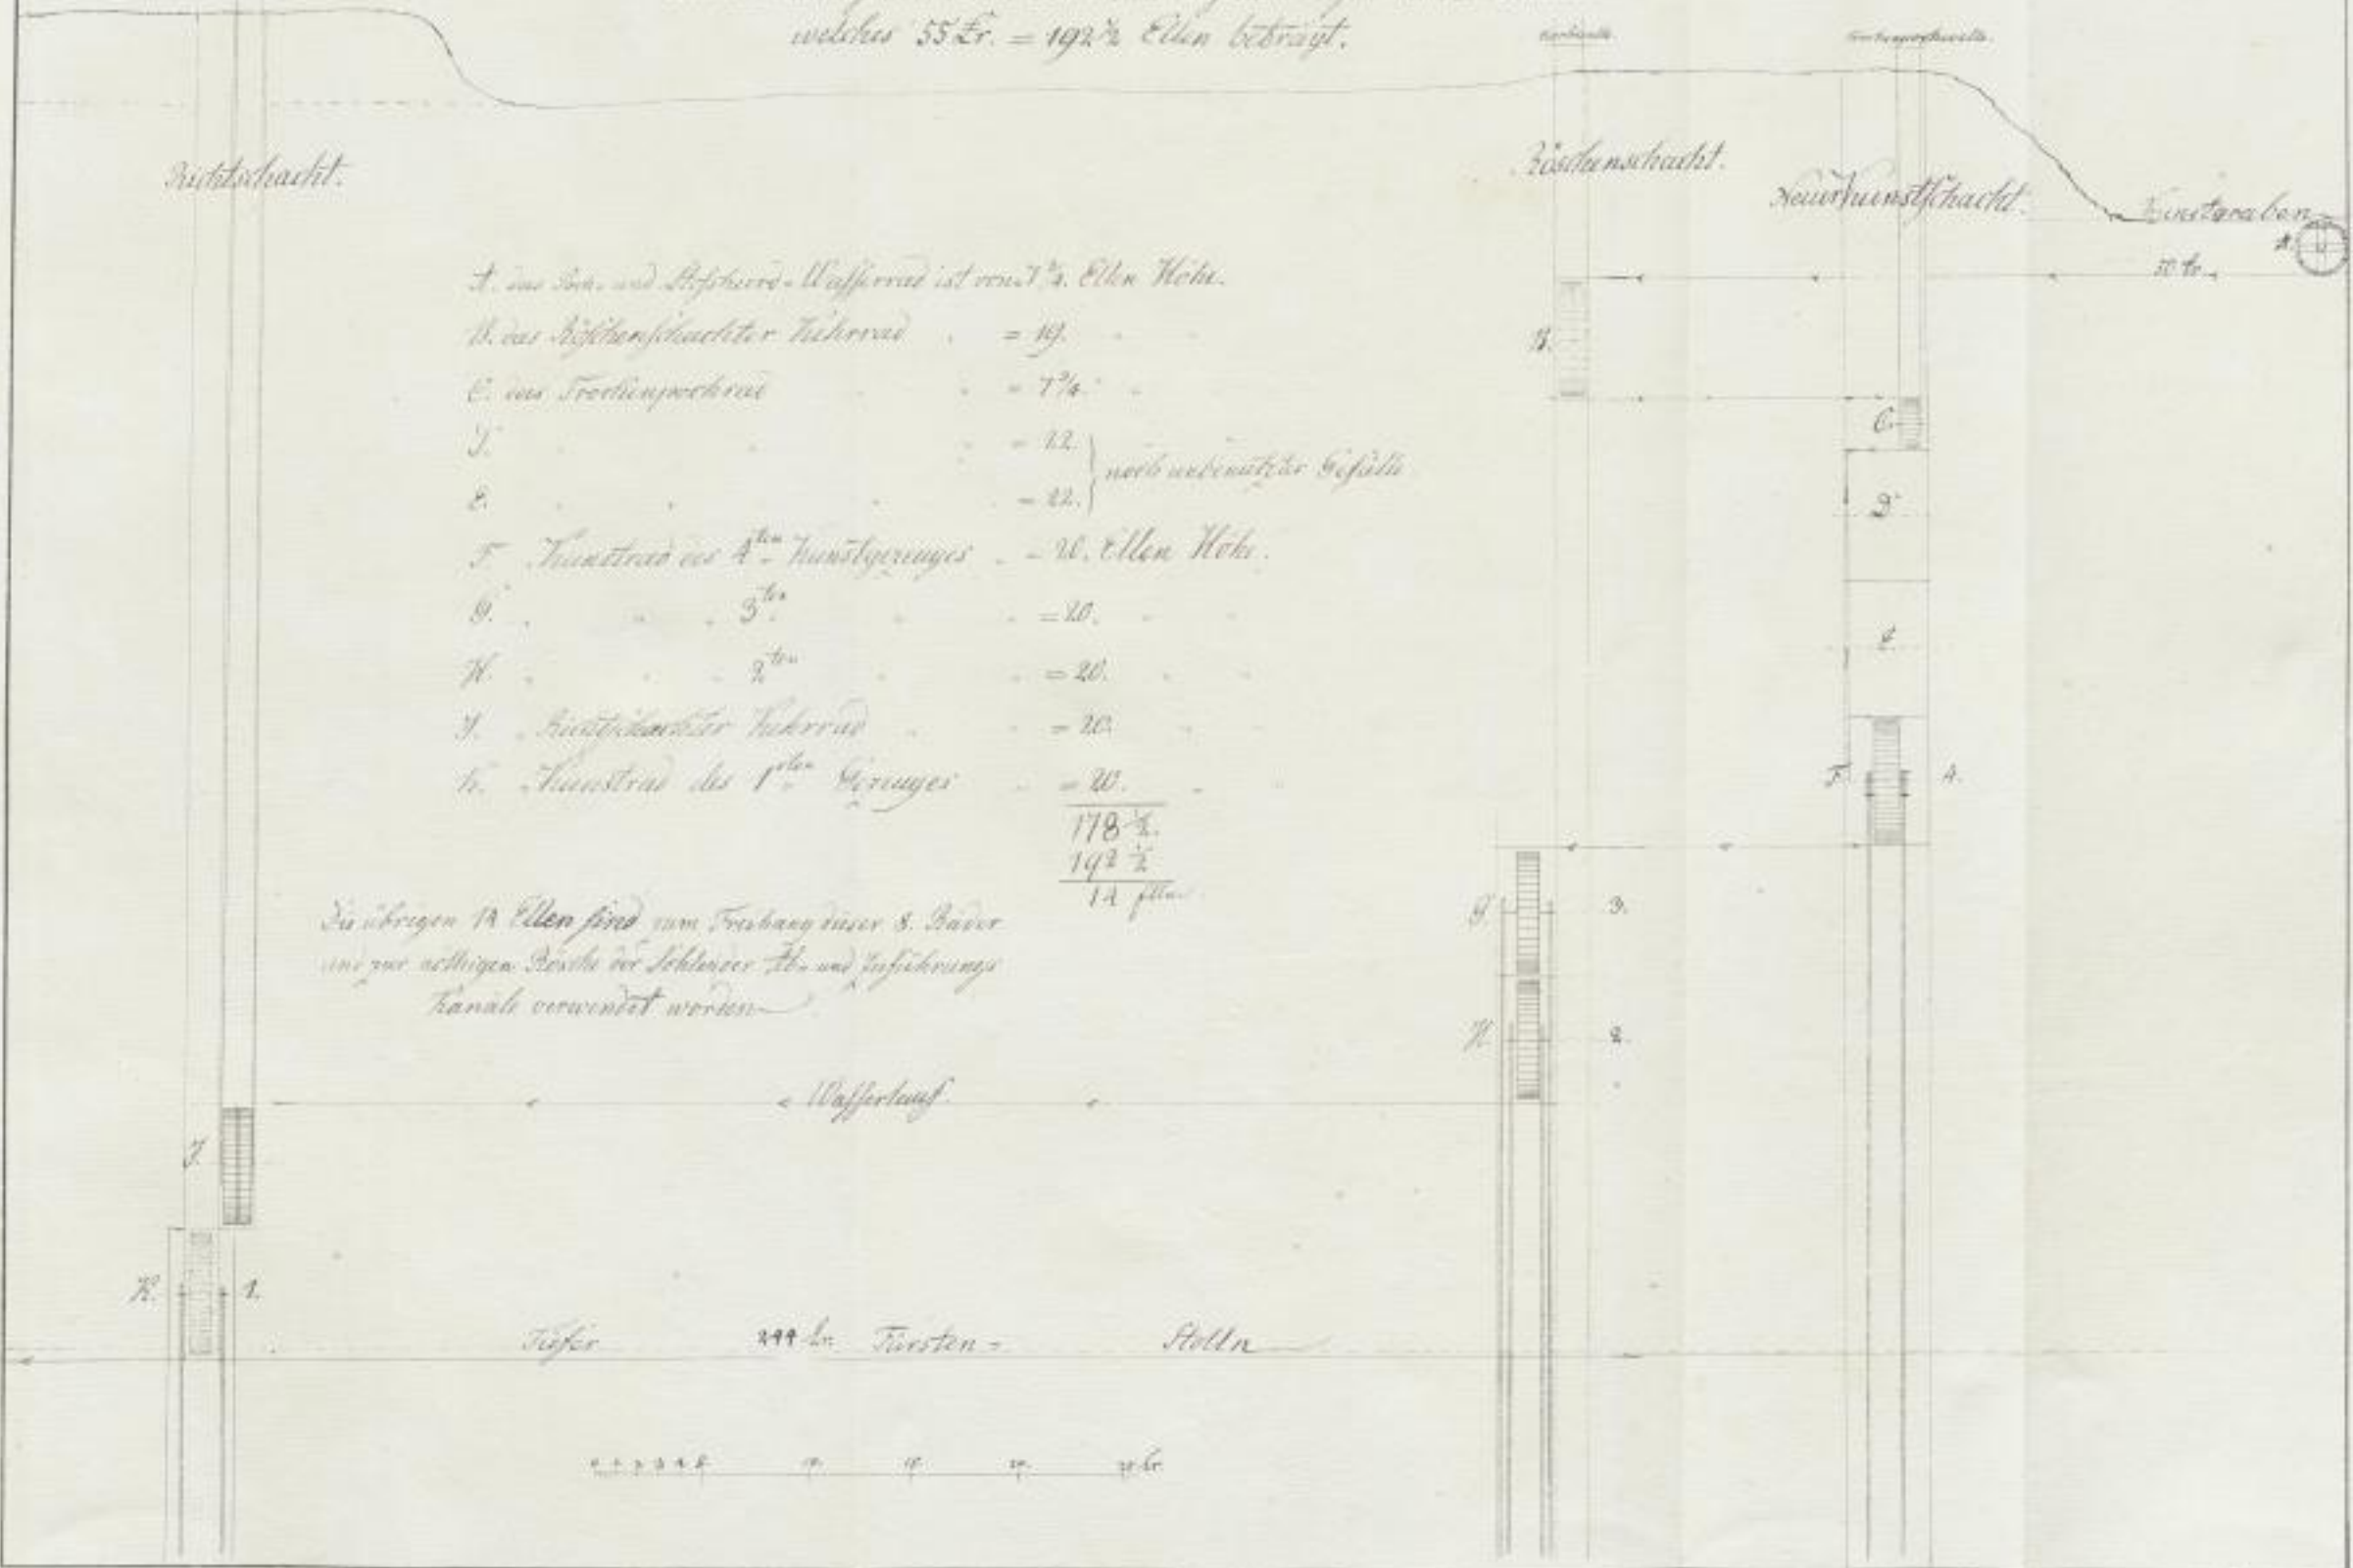 welches 55 Lr. = 192 1/2 Ellen beträgt.
Richtschacht.
Röschenschacht.
Neuer Kunstschacht.
Kunstgraben
A.
50 Lr.
A. das Poch- und Stoßheerd-Wasserrad ist von 7 3/4. Ellen Höhe.
B. das Röschenschachter Kehrrad = 19.
C. das Trockenpochrad = 7 3/4.
D. = 22.
noch unbenutzter Gefälle
E. = 22.
F. Kunstrad des 4ten Kunstgezeuges = 20. Ellen Höhe.
G. 3ten = 20.
H. 2ten = 20.
J. Richtschachter Kehrrad = 20.
K. Kunstrad des 1sten Gezeuges = 20.
178 1/2.
192 1/2
14 Ellen
Die übrigen 14 Ellen sind zum Freihang dieser 8. Räder
und zur nöthigen Rösche der Ab- und Zuführungs
Kanäle verwendet worden
B.
C.
D
E
F. 4.
G. 3.
H 2.
Wasserlauf.
J.
K. 1.
Tiefer Fürsten- Stolln